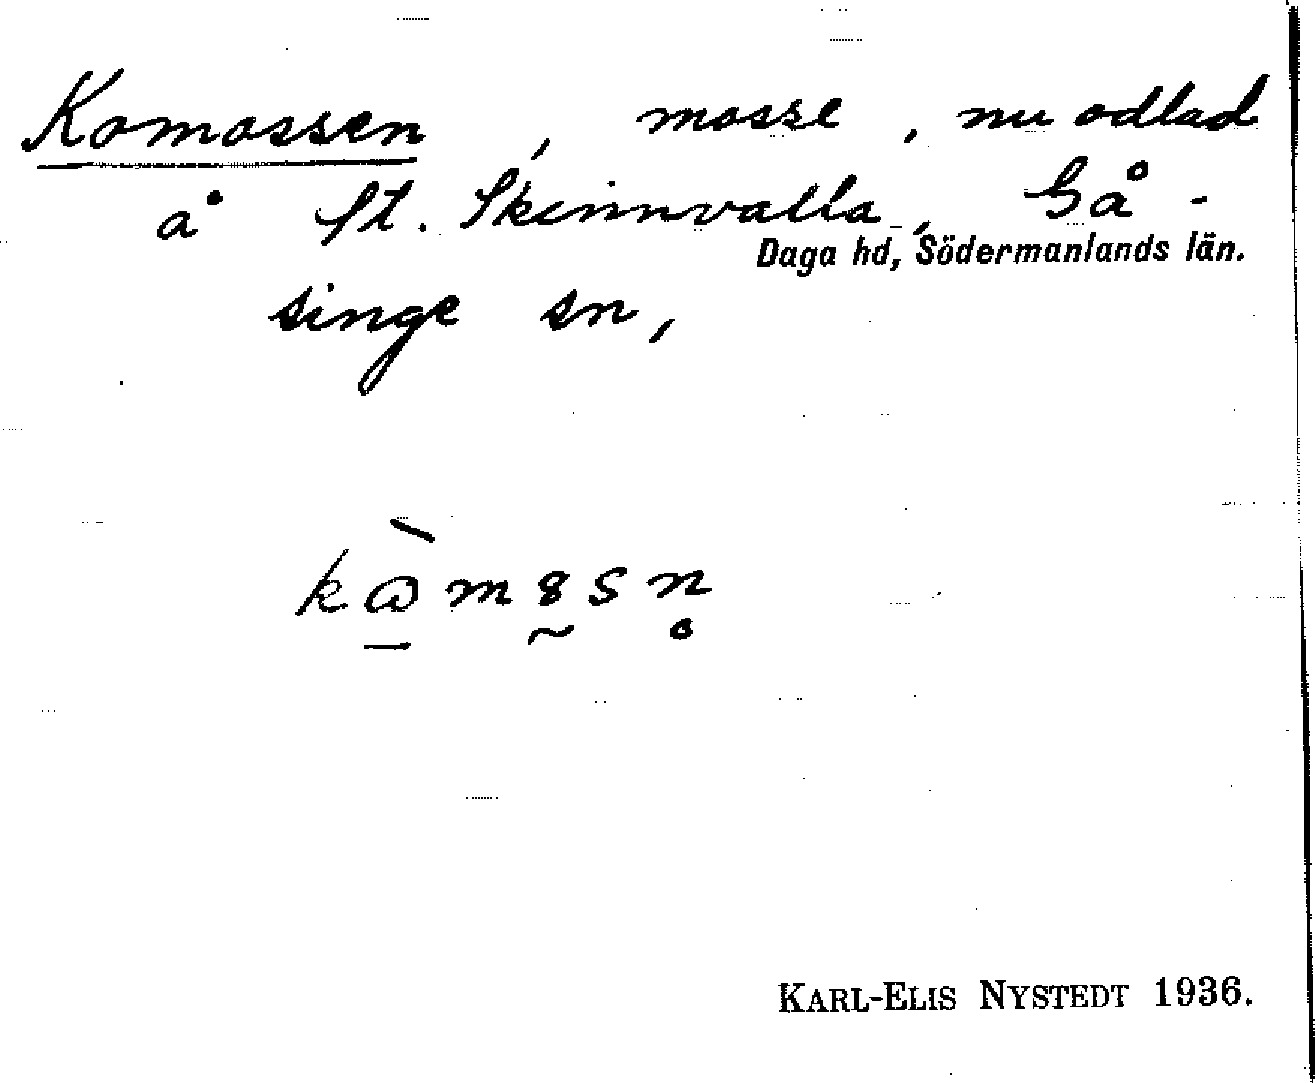 Komossen, mosse, nu odlad
å St. Skinnvalla, Gå-
Daga hd, Södermanlands län.
singe sn,
KARL-ELIS NYSTEDT 1936.